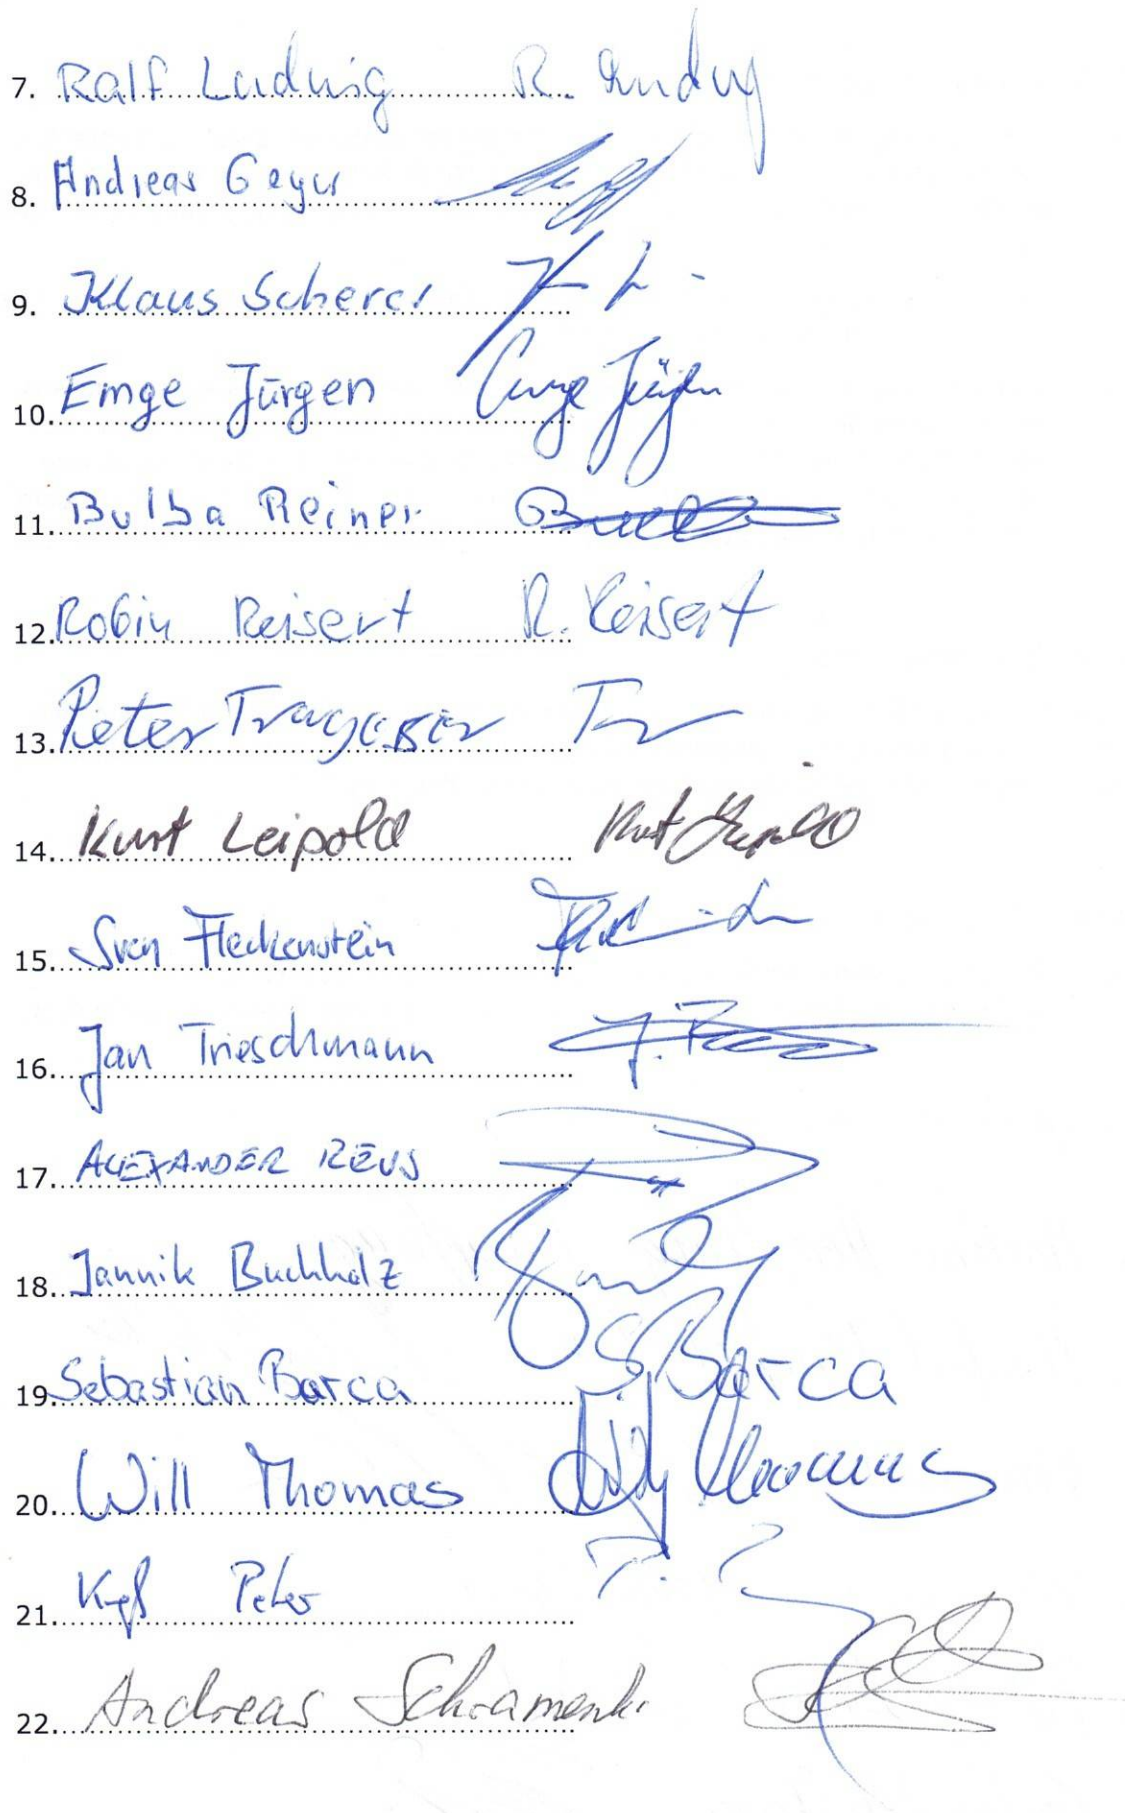 7. Ralf Ludwig R. Ludwig
8. Andreas Geyer
9. Klaus Scherer
10. Emge Jürgen Emge Jürgen
11. Bulba Reiner
12. Robin Reisert R. Reisert
13. Peter
14. Kurt Leipold Kurt Leipold
15. Sven Fleckenstein
16. Jan Trieschmann
17. ALEXANDER REUS
18. Jannik Buchholz
19. Sebastian Barca S. Barca
20. Will Thomas Thomas
21. Peter P.
22. Andreas